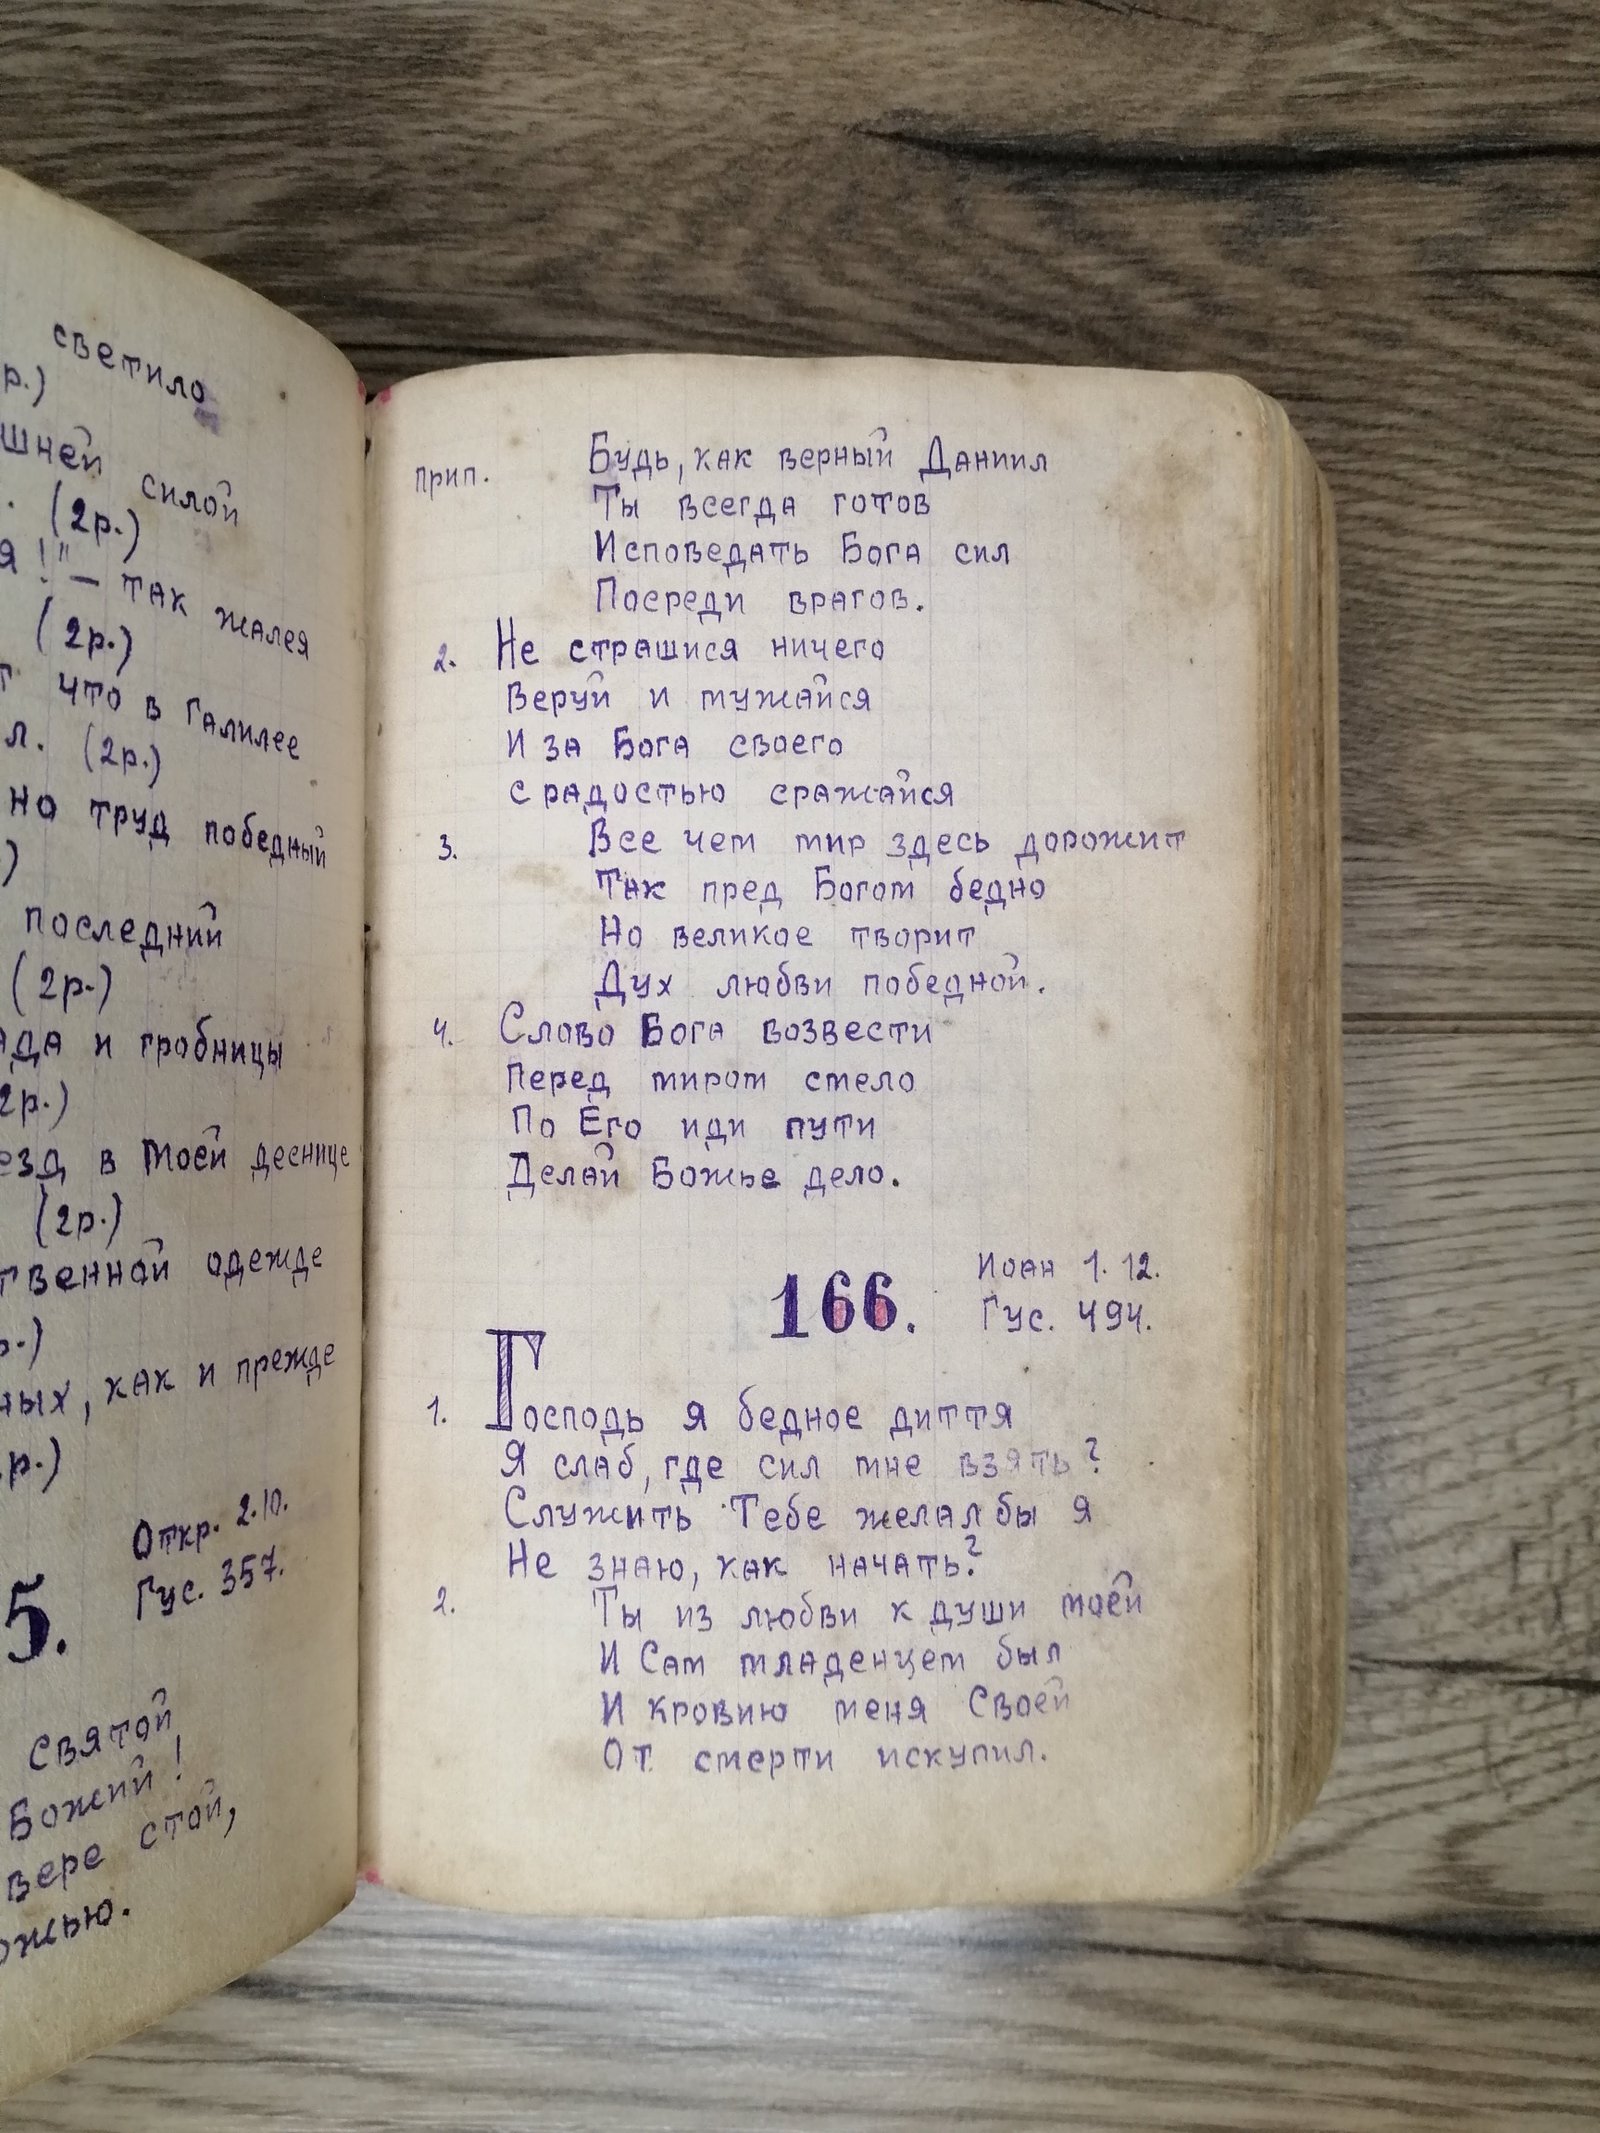 светило
р.)
шней силой
. (2р.)
я!" — так жалея
(2р.)
т что в Галилее
л. (2р.)
но труд победный
)
последний
(2р.)
ада и гробницы
2р.)
езд в Моей деснице
(2р.)
твенной одежде
р.)
ных, как и прежде
.р.)
Откр. 2.10.
5. Гус. 357.
святой
Божий!
вере стой,
ожью.
прип. Будь, как верный Даниил
Ты всегда готов
Исповедать Бога сил
Посреди врагов.
2. Не страшися ничего
Веруй и мужайся
И за Бога своего
с радостью сражайся
3. Все чем мир здесь дорожит
Так пред Богом бедно
Но великое творит
Дух любви победной.
4. Слово Бога возвести
Перед миром смело
По Его иди пути
Делай Божье дело.
Иоан 1. 12.
166. Гус. 494.
1. Господь я бедное диття
Я слаб, где сил мне взять?
Служить Тебе желал бы я
Не знаю, как начать?
2. Ты из любви к души моей
И Сам младенцем был
И кровию меня Своей
От смерти искупил.